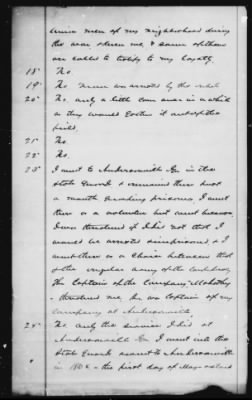 union men of my neighborhood during
the war, shun me, & some of them
are called to testify to my loyalty.
18 No.
19 No. Never was arrested by the rebels
20 No, only a little corn once in a while
as they would gather it out of the
field.
21 No.
22 No.
23 I went to Andersonville Ga in the
State Guard & remained there about
a month guarding prisoners, I went
there as a volunteer but went because
I was threatened if I did not that I
would be arrested & imprisoned & I
went there as a choice between that
& the regular army of the Confederacy
the Captain of the Company
threatened me, he was Captain of my
Company at Andersonville
24 No, only the service I did at
Andersonville Ga I went into the
State Guards & went to Andersonville
in 1864 - the first day of May